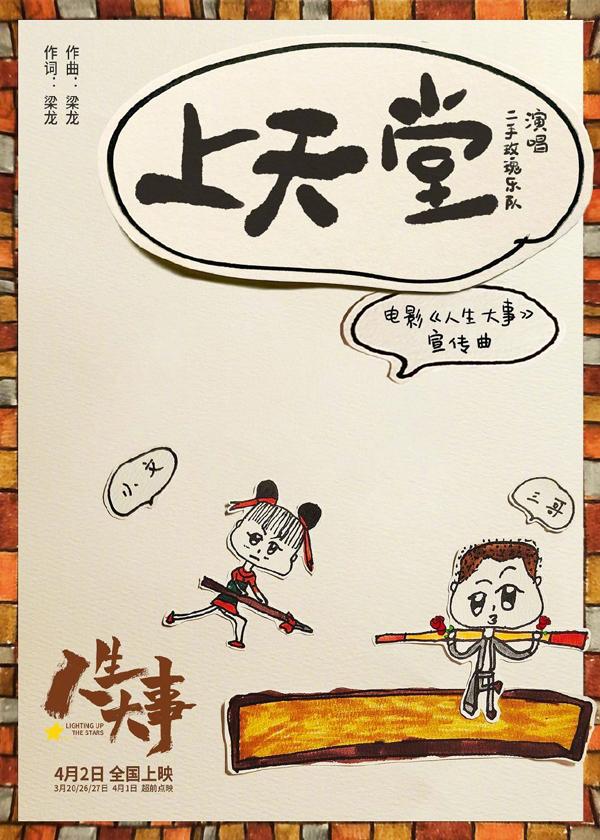 作曲：梁龙
作词：梁龙
上天堂
演唱
二手玫瑰乐队
电影《人生大事》
宣传曲
小文
三哥
人生大事
LIGHTING UP
THE STARS
4月2日 全国上映
3月20/26/27日 4月1日 超前点映